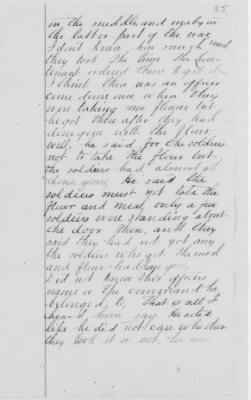 35
in the middle and maby in
the latter part of the war
I dont know how much meal
they took the time the Lieu-
tenant ordered them to get it
I think there was an officer
come down once when they
were taking some flour but
he got there after they had
done gone with the flour
well, he said for the soldiers
not to take the flour but
the soldiers had almost all
done gone. He said the
soldiers must not take the
flour and meal, only a few
soldiers were standing about
the door then, and they
said they had not got any
the soldiers who got the meal
and flour had done gone,
Did not know this officers
name or the command he
belonged to, That is all I
heard him say. He acted
like he did not care whether
they took it or not, he was